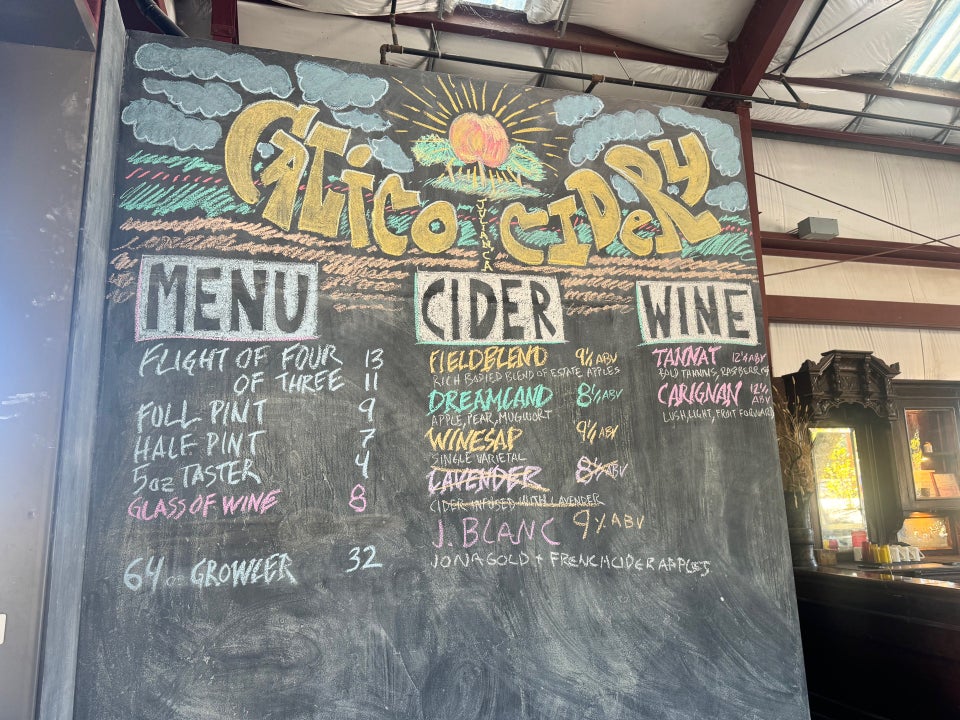 CALICO CIDERY
JULIANCA
MENU
FLIGHT OF FOUR 13
OF THREE 11
FULL PINT 9
HALF PINT 7
5oz TASTER 4
GLASS OF WINE 8
64oz GROWLER 32
CIDER
FIELDBLEND 9% ABV
RICH BADIED BLEND OF ESTATE APPLES
DREAMLAND 8% ABV
APPLE, PEAR, MUGWORT
WINESAP 9% ABV
SINGLE VARIETAL
LAVENDER 8% ABV
CIDER INFUSED WITH LAVENDER
J. BLANC 9% ABV
JONAGOLD + FRENCH CIDER APPLES
WINE
TANNAT 12% ABV
BOLD TANNINS, RASPBERRY
CARIGNAN 12% ABV
LUSH, LIGHT, FRUIT FORWARD